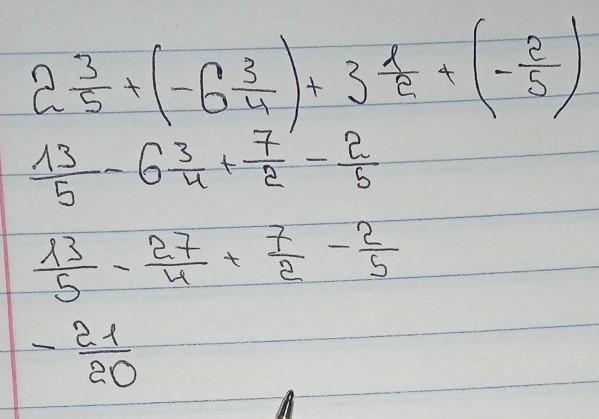 2 3/5 + (-6 3/4) + 3 1/2 + (-2/5)
13/5 - 6 3/4 + 7/2 - 2/5
13/5 - 27/4 + 7/2 - 2/5
- 21/20